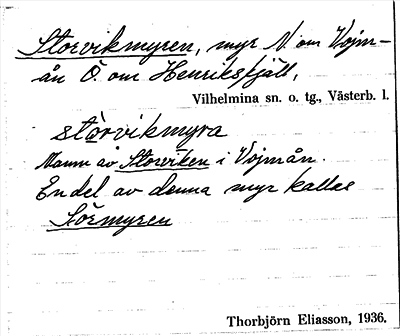 Storvikmyren, myr N. om Vojm-
ån Ö. om Henriksfjäll,
Vilhelmina sn. o. tg., Västerb. l.
stòrvikmyra
Namn av Storviken i Vojmån.
En del av denna myr kallas
Störmyren
Thorbjörn Eliasson, 1936.